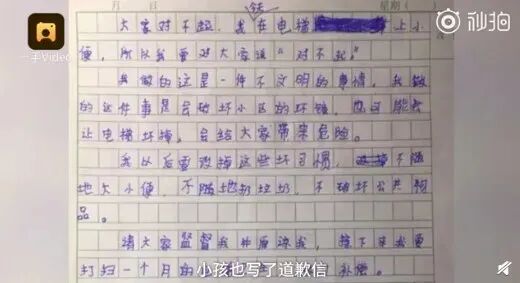 年
星期（ ）
秒拍
一手Video
大家对不起，我在电梯上小
便，所以我要对大家说“对不起”。
我做的这是一件不文明的事情，我做
的这件事是会破坏小区的环境，也可能会
让电梯坏掉，会给大家带来危险。
我以后要改掉这些坏习惯，不随
地大小便，不随地扔垃圾，不破坏公共物
品。
请大家监督我并原谅我，接下来我要
打扫一个月的 补偿。
小孩也写了道歉信